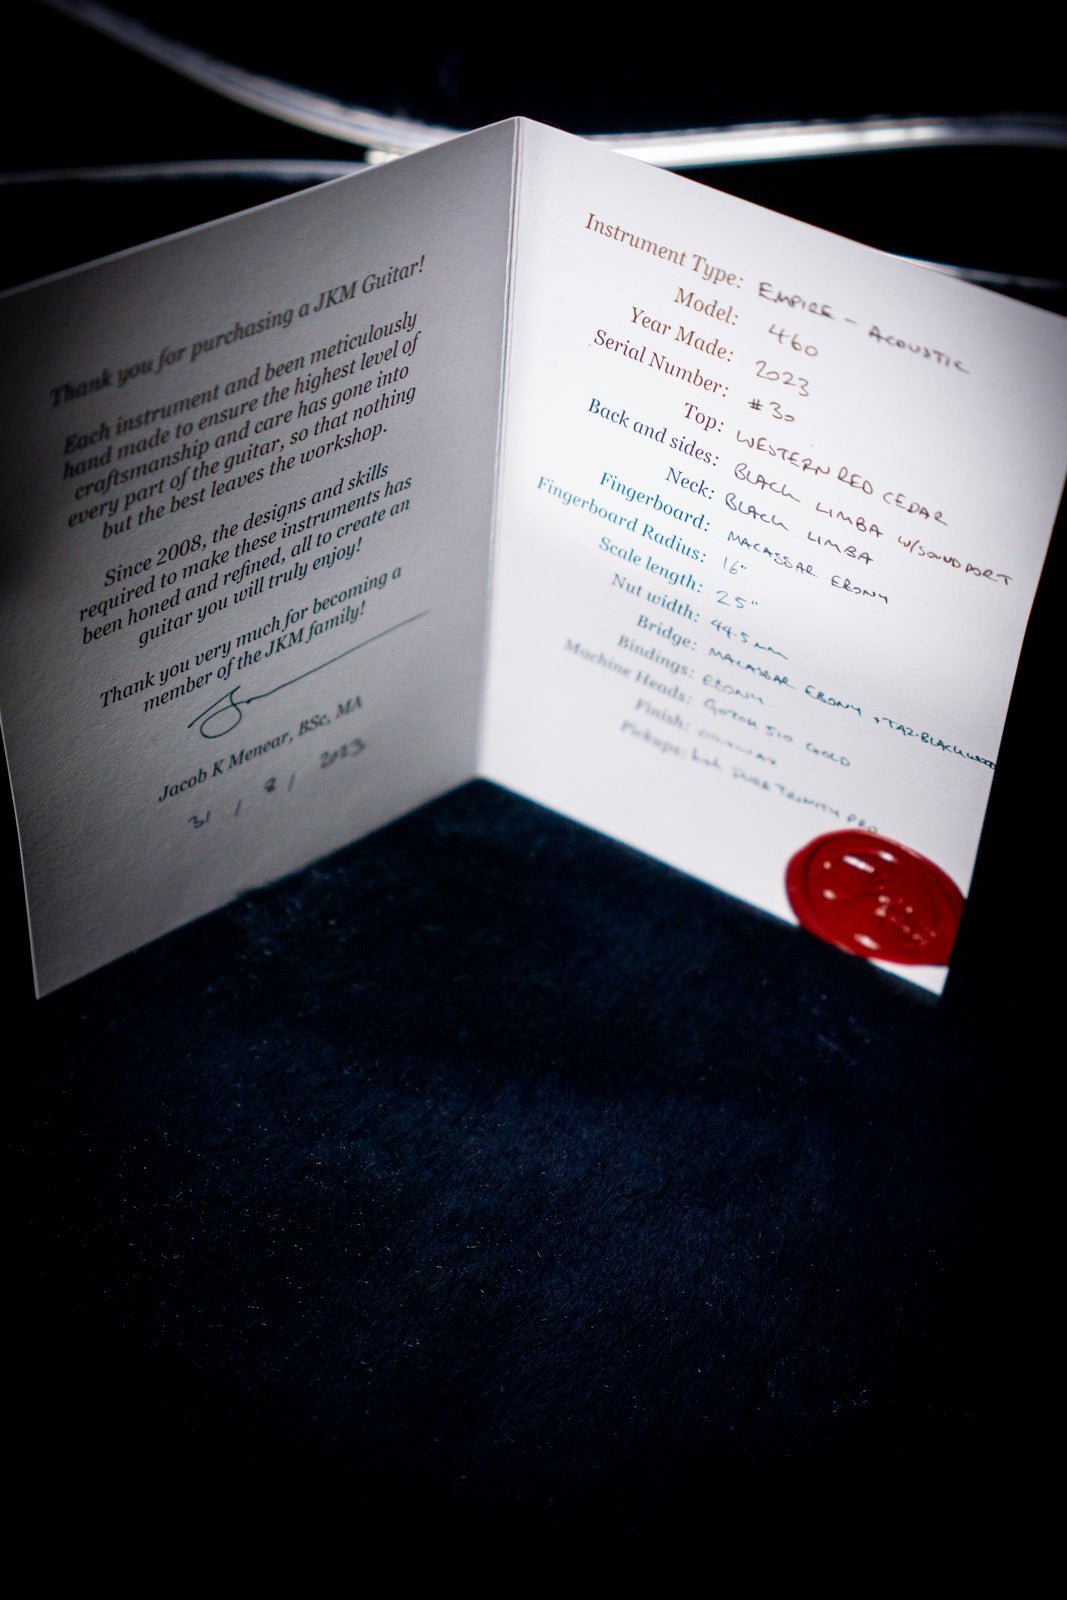 Thank you for purchasing a JKM Guitar!
Each instrument and been meticulously
hand made to ensure the highest level of
craftsmanship and care has gone into
every part of the guitar, so that nothing
but the best leaves the workshop.
Since 2008, the designs and skills
required to make these instruments has
been honed and refined, all to create an
guitar you will truly enjoy!
Thank you very much for becoming a
member of the JKM family!
Jacob K Menear, BSc, MA
31 / 8 / 2023
Instrument Type: EMPIRE - ACOUSTIC
Model: 460
Year Made: 2023
Serial Number: #30
Top: WESTERN RED CEDAR
Back and sides: BLACK LIMBA W/SOUNDPORT
Neck: BLACK LIMBA
Fingerboard: MACASSAR EBONY
Fingerboard Radius: 16"
Scale length: 25"
Nut width: 44.5mm
Bridge: MACASSAR EBONY + TAZ.BLACKWOOD
Bindings: EBONY
Machine Heads: GOTOH 510 GOLD
Finish:
Pickups: TRINITY PRO